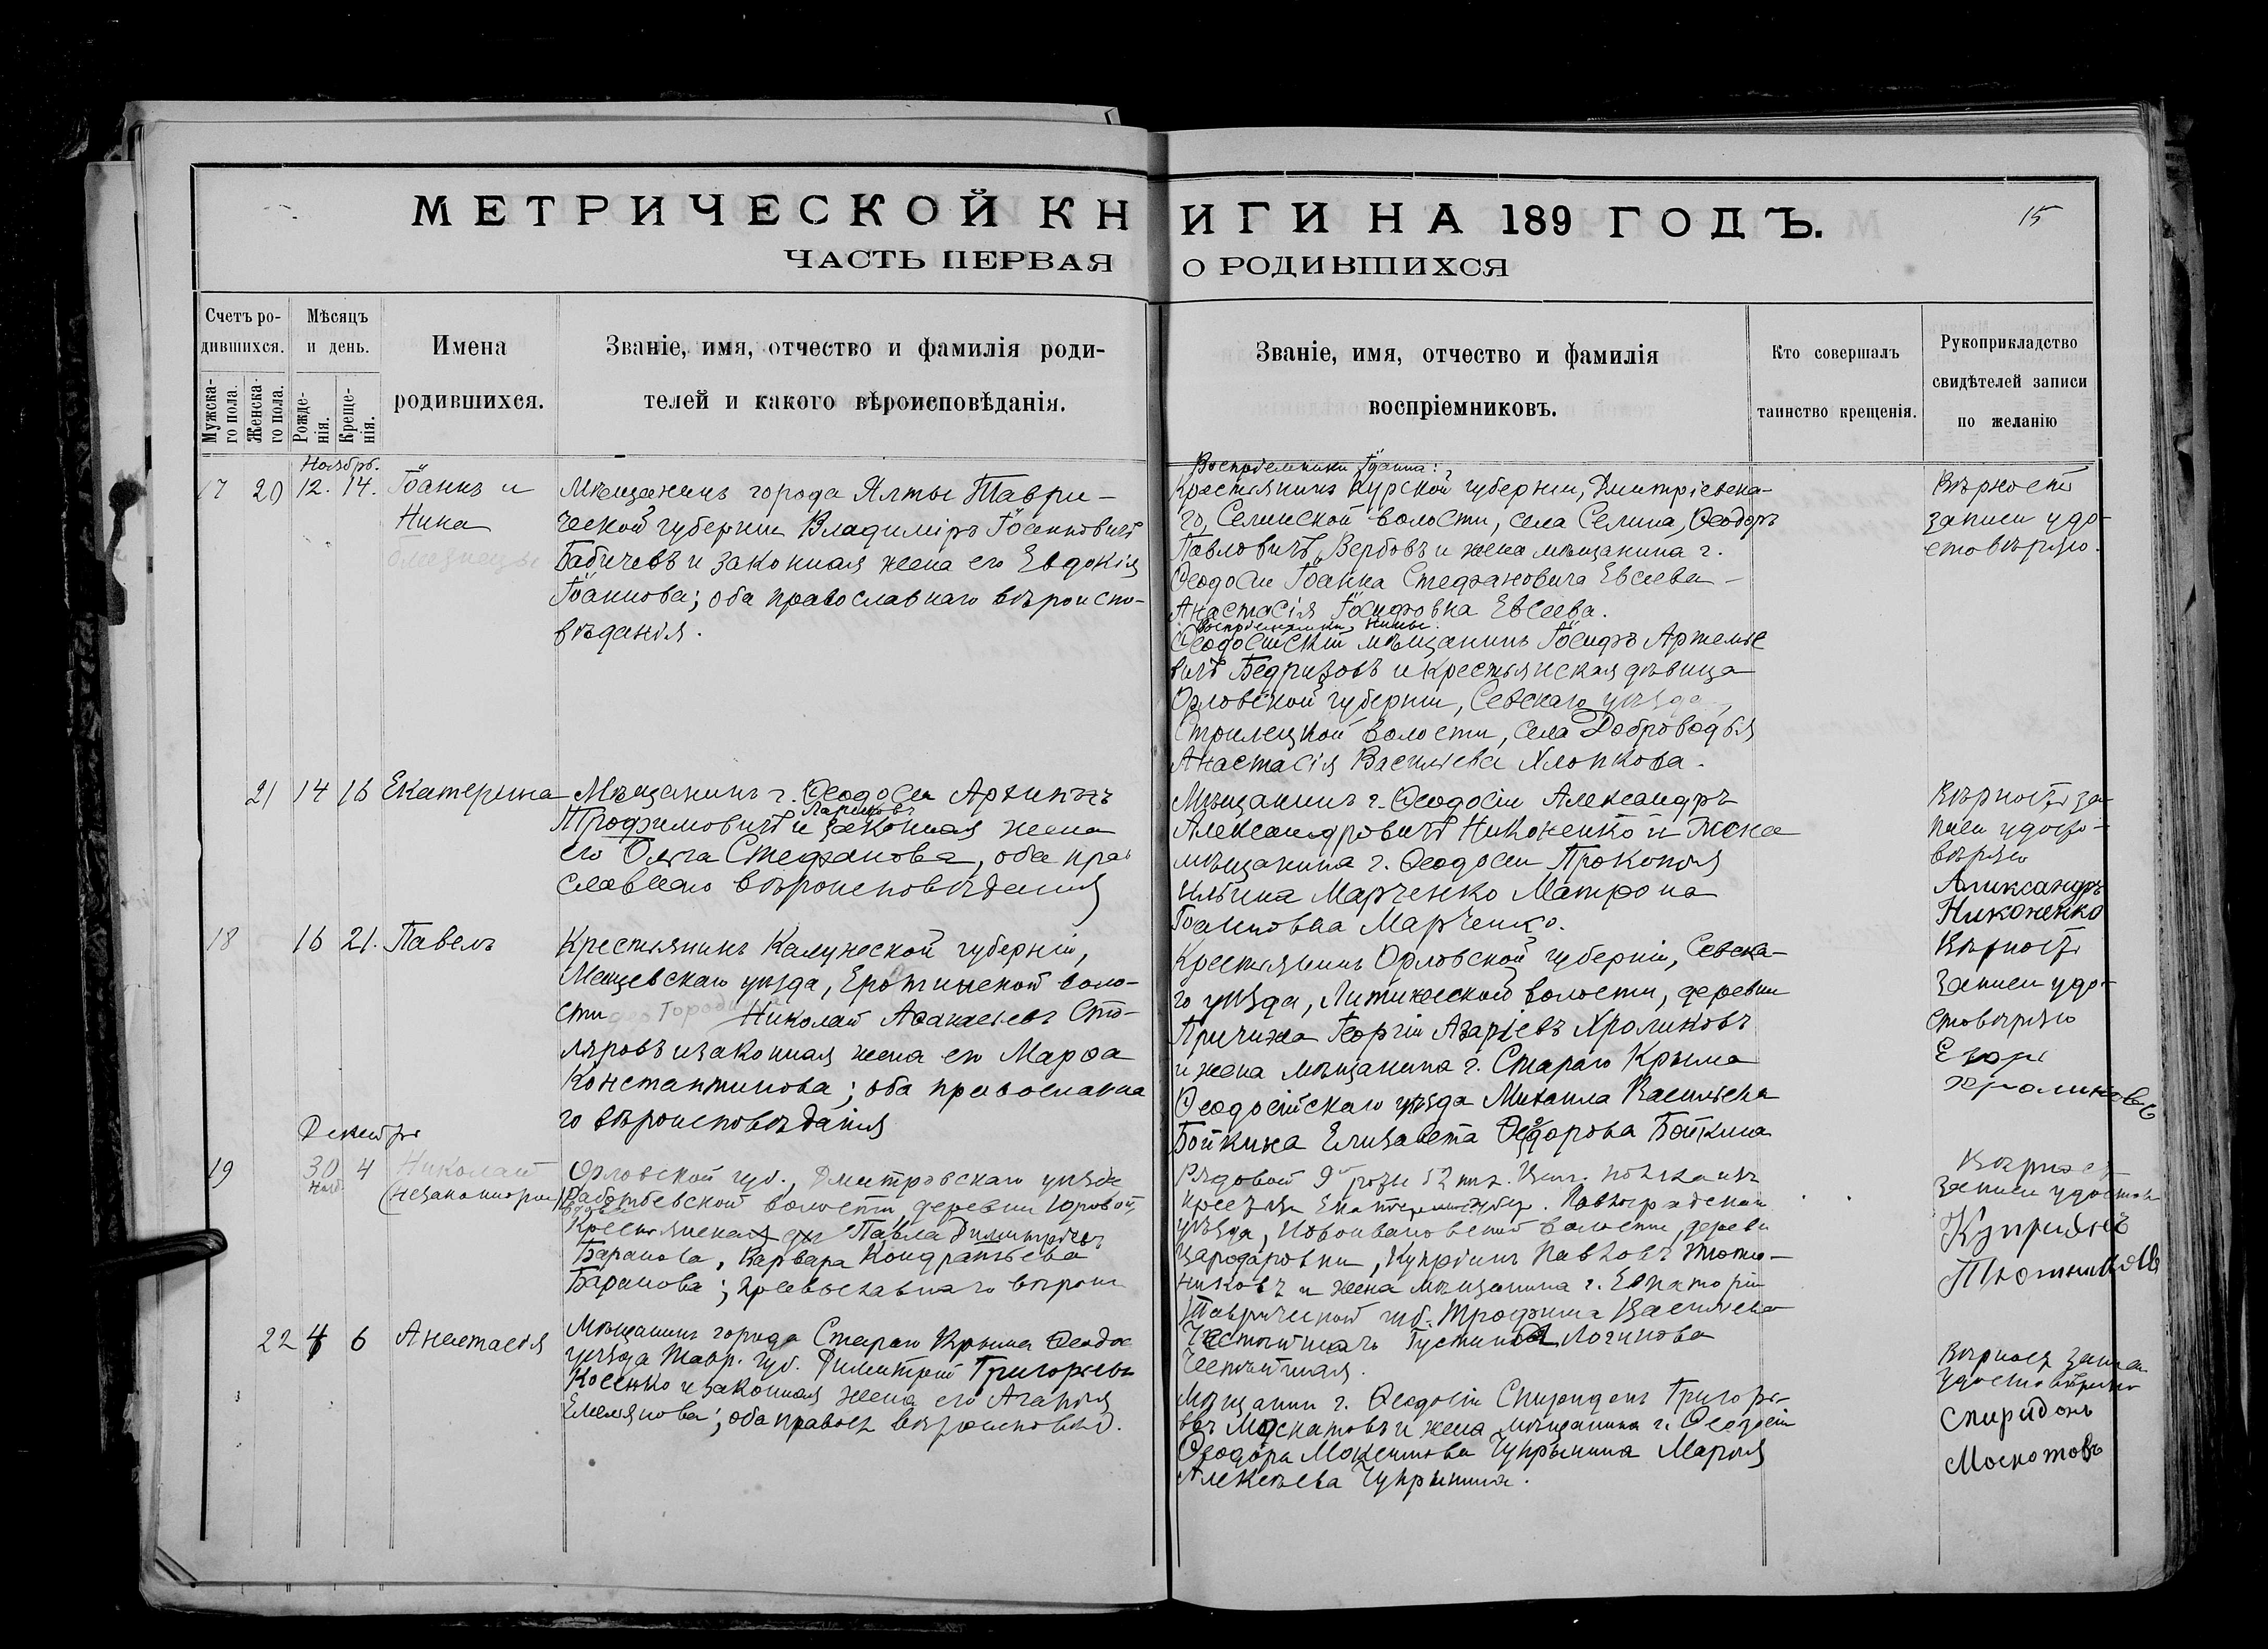 МЕТРИЧЕСКОЙ КНИГИ НА 189 ГОДЪ.
15
ЧАСТЬ ПЕРВАЯ О РОДИВШИХСЯ
Счетъ ро-
дившихся.
Мужска-
го пола.
Женска-
го пола.
Мѣсяцъ
и день.
Рожде-
нія.
Креще-
нія.
Имена
родившихся.
Званіе, имя, отчество и фамилія роди-
телей и какого вѣроисповѣданія.
Званіе, имя, отчество и фамилія
воспріемниковъ.
Кто совершалъ
таинство крещенія.
Рукоприкладство
свидѣтелей записи
по желанію
Ноябрь.
17 20 12. 14. Іоаннъ и
Нина
близнецы
Мѣщанинъ города Ялты Таври-
ческой губерніи Владиміръ Іоанновичъ
Бабичевъ и законная жена его Евдокія
Іоаннова; оба православнаго вѣроиспо-
вѣданія.
Воспріемники Іоанна:
Крестьянинъ Курской губерніи, Дмитріевска-
го, Селинской волости, села Селина, Ѳеодоръ
Павловичъ Вербовъ и жена мѣщанина г.
Ѳеодосіи Іоанна Стефановича Евсеева
Анастасія Іосифовна Евсеева.
Воспріемники Нины:
Ѳеодосійскій мѣщанинъ Іосифъ Артемье
вичъ Бедризовъ и крестьянская дѣвица
Орловской губерніи, Севскаго уѣзда,
Стрилецкой волости, села Доброводья
Анастасія Васильева Хлопкова.
Вѣрность
записи удо-
стовѣряю.
21 14 16 Екатерина
Мѣщанинъ г. Ѳеодосіи
Трофимовичъ и законная жена
его Ольга Стефанова, оба пра
славнаго вѣроисповѣданія
Мѣщанинъ г. Ѳеодосіи Александръ
Александровичъ Никоненко и жена
мѣщанина г. Ѳеодосіи Прокопія
Ильина Марченко Матрона
Іоанновна Марченко.
Вѣрность за-
писи удосто-
вѣряю
Александръ
Никоненко
18 16 21. Павелъ
Крестьянинъ Калужской губерніи,
Мещевскаго уѣзда, воло-
сти Николай Аѳанасьевъ Сто-
ляровъ и законная жена его Марѳа
Константинова; оба православна
го вѣроисповѣданія
Крестьянинъ Орловской губерніи, Севска-
го уѣзда, волости, деревни
Причижа Георгій Азаріевъ Хроликовъ
и жена мѣщанина г. Стараго Крыма
Ѳеодосійскаго уѣзда Михаила Васильева
Бойкина Елизавета Ѳеодорова Бойкина
Вѣрность
записи удо-
стовѣряю
Егоръ
Хроликовъ
Декабрь
19 30 4 Николай
нояб. (незаконнорож)
Орловской губ., Дмитровскаго уѣзда
волости деревни Юровой,
Крестьянская Павла Димитріевъ
Баранова, Варвара Кондратьева
Баранова; православнаго вѣроис
Рядовой 9й роты 52 пѣх. Вил. полка изъ
крестьянъ Екатеринос. губер. Павлоградскаго
уѣзда, Новоивановской волости, деревни
Цародаровки, Купріянъ Павловъ Тютю-
никовъ и жена мѣщанина г. Евпаторіи
Таврической губ. Трофима Васильева
Логинова
Вѣрность
записи удостов
Купріянъ
22 4 6 Анастасія
Мѣщанинъ города Стараго Крыма Ѳеодос
уѣзда Тавр. губ. Димитрій Григорьевъ
Косенко и законная жена его Агафія
Емельянова; оба правосл вѣроисповѣд.
Мѣщанинъ г. Ѳеодосіи Спиридонъ Григорь-
евъ Москатовъ и жена мѣщанина г. Ѳеодосіи
Ѳеодора Чупрынина Марія
Алексѣева Чупрынина.
Вѣрность записи
удостовѣряю
Спиридонъ
Москотовъ